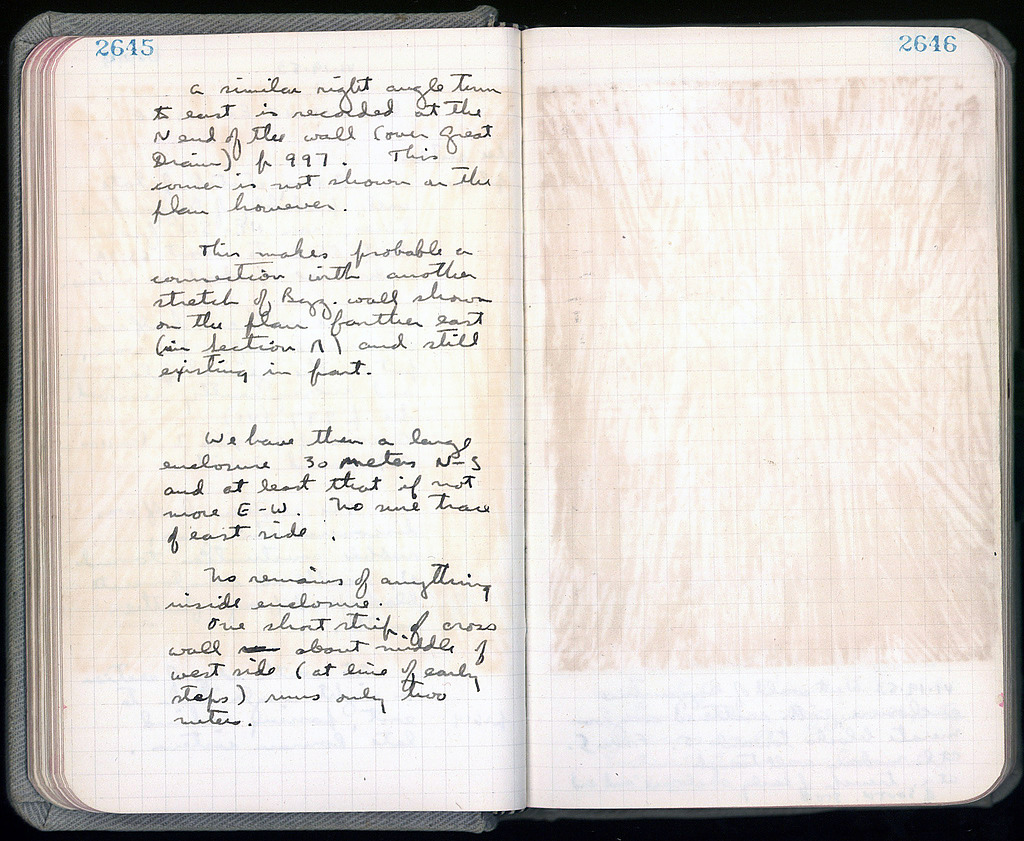 2645
a similar right angle turn
to east is recorded at the
N end of the wall (over Great
Drain) p 997. This
corner is not shown on the
plan however.
This makes probable a
connection with another
stretch of Byz. wall shown
on the plan farther east
(in Section N) and still
existing in part.
We have then a large
enclosure 30 meters N-S
and at least that if not
more E-W. No sure trace
of east side.
No remains of anything
inside enclosure.
One short strip of cross
wall about middle of
west side (at line of early
steps) runs only two
meters.
2646